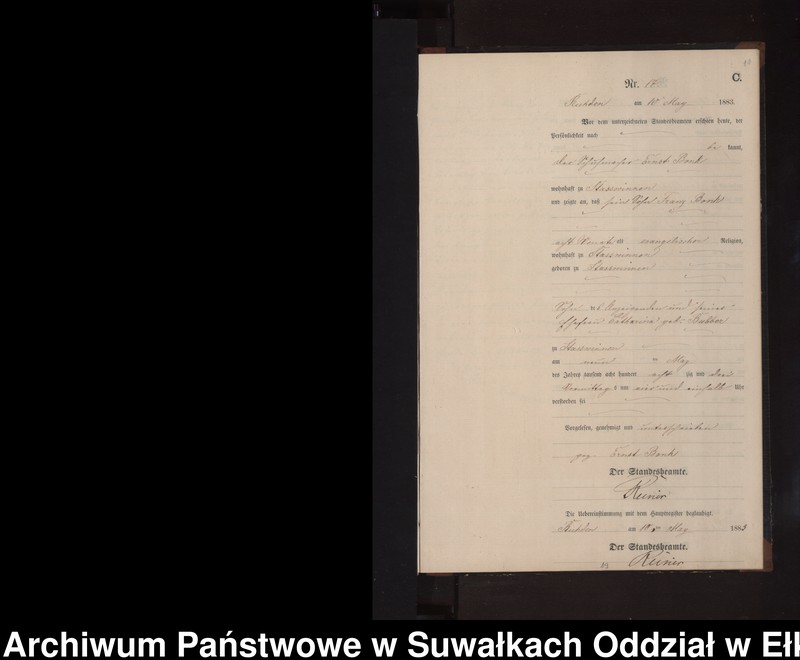 C.
Nr. 18
am 10 May 1883.
Vor dem unterzeichneten Standesbeamten erschien heute, der
Persönlichkeit nach
be kannt,
der Ernst Bonk
wohnhaft zu
und zeigte an, daß sein Sohn Franz Bonk
acht Monate alt evangelischer Religion,
wohnhaft zu
geboren zu
Sohn des Anzeigenden und seiner
Ehefrau Catharina geb.
zu
am neun ten May
des Jahres tausend acht hundert acht zig und drei
Vormittag s um ein und einhalb Uhr
verstorben sei
Vorgelesen, genehmigt und unterschrieben
gez Ernst Bonk
Der Standesbeamte.
Die Uebereinstimmung mit dem Hauptregister beglaubigt.
am 10 ten May 1883
Der Standesbeamte.
Archiwum Państwowe w Suwałkach Oddział w Ełk